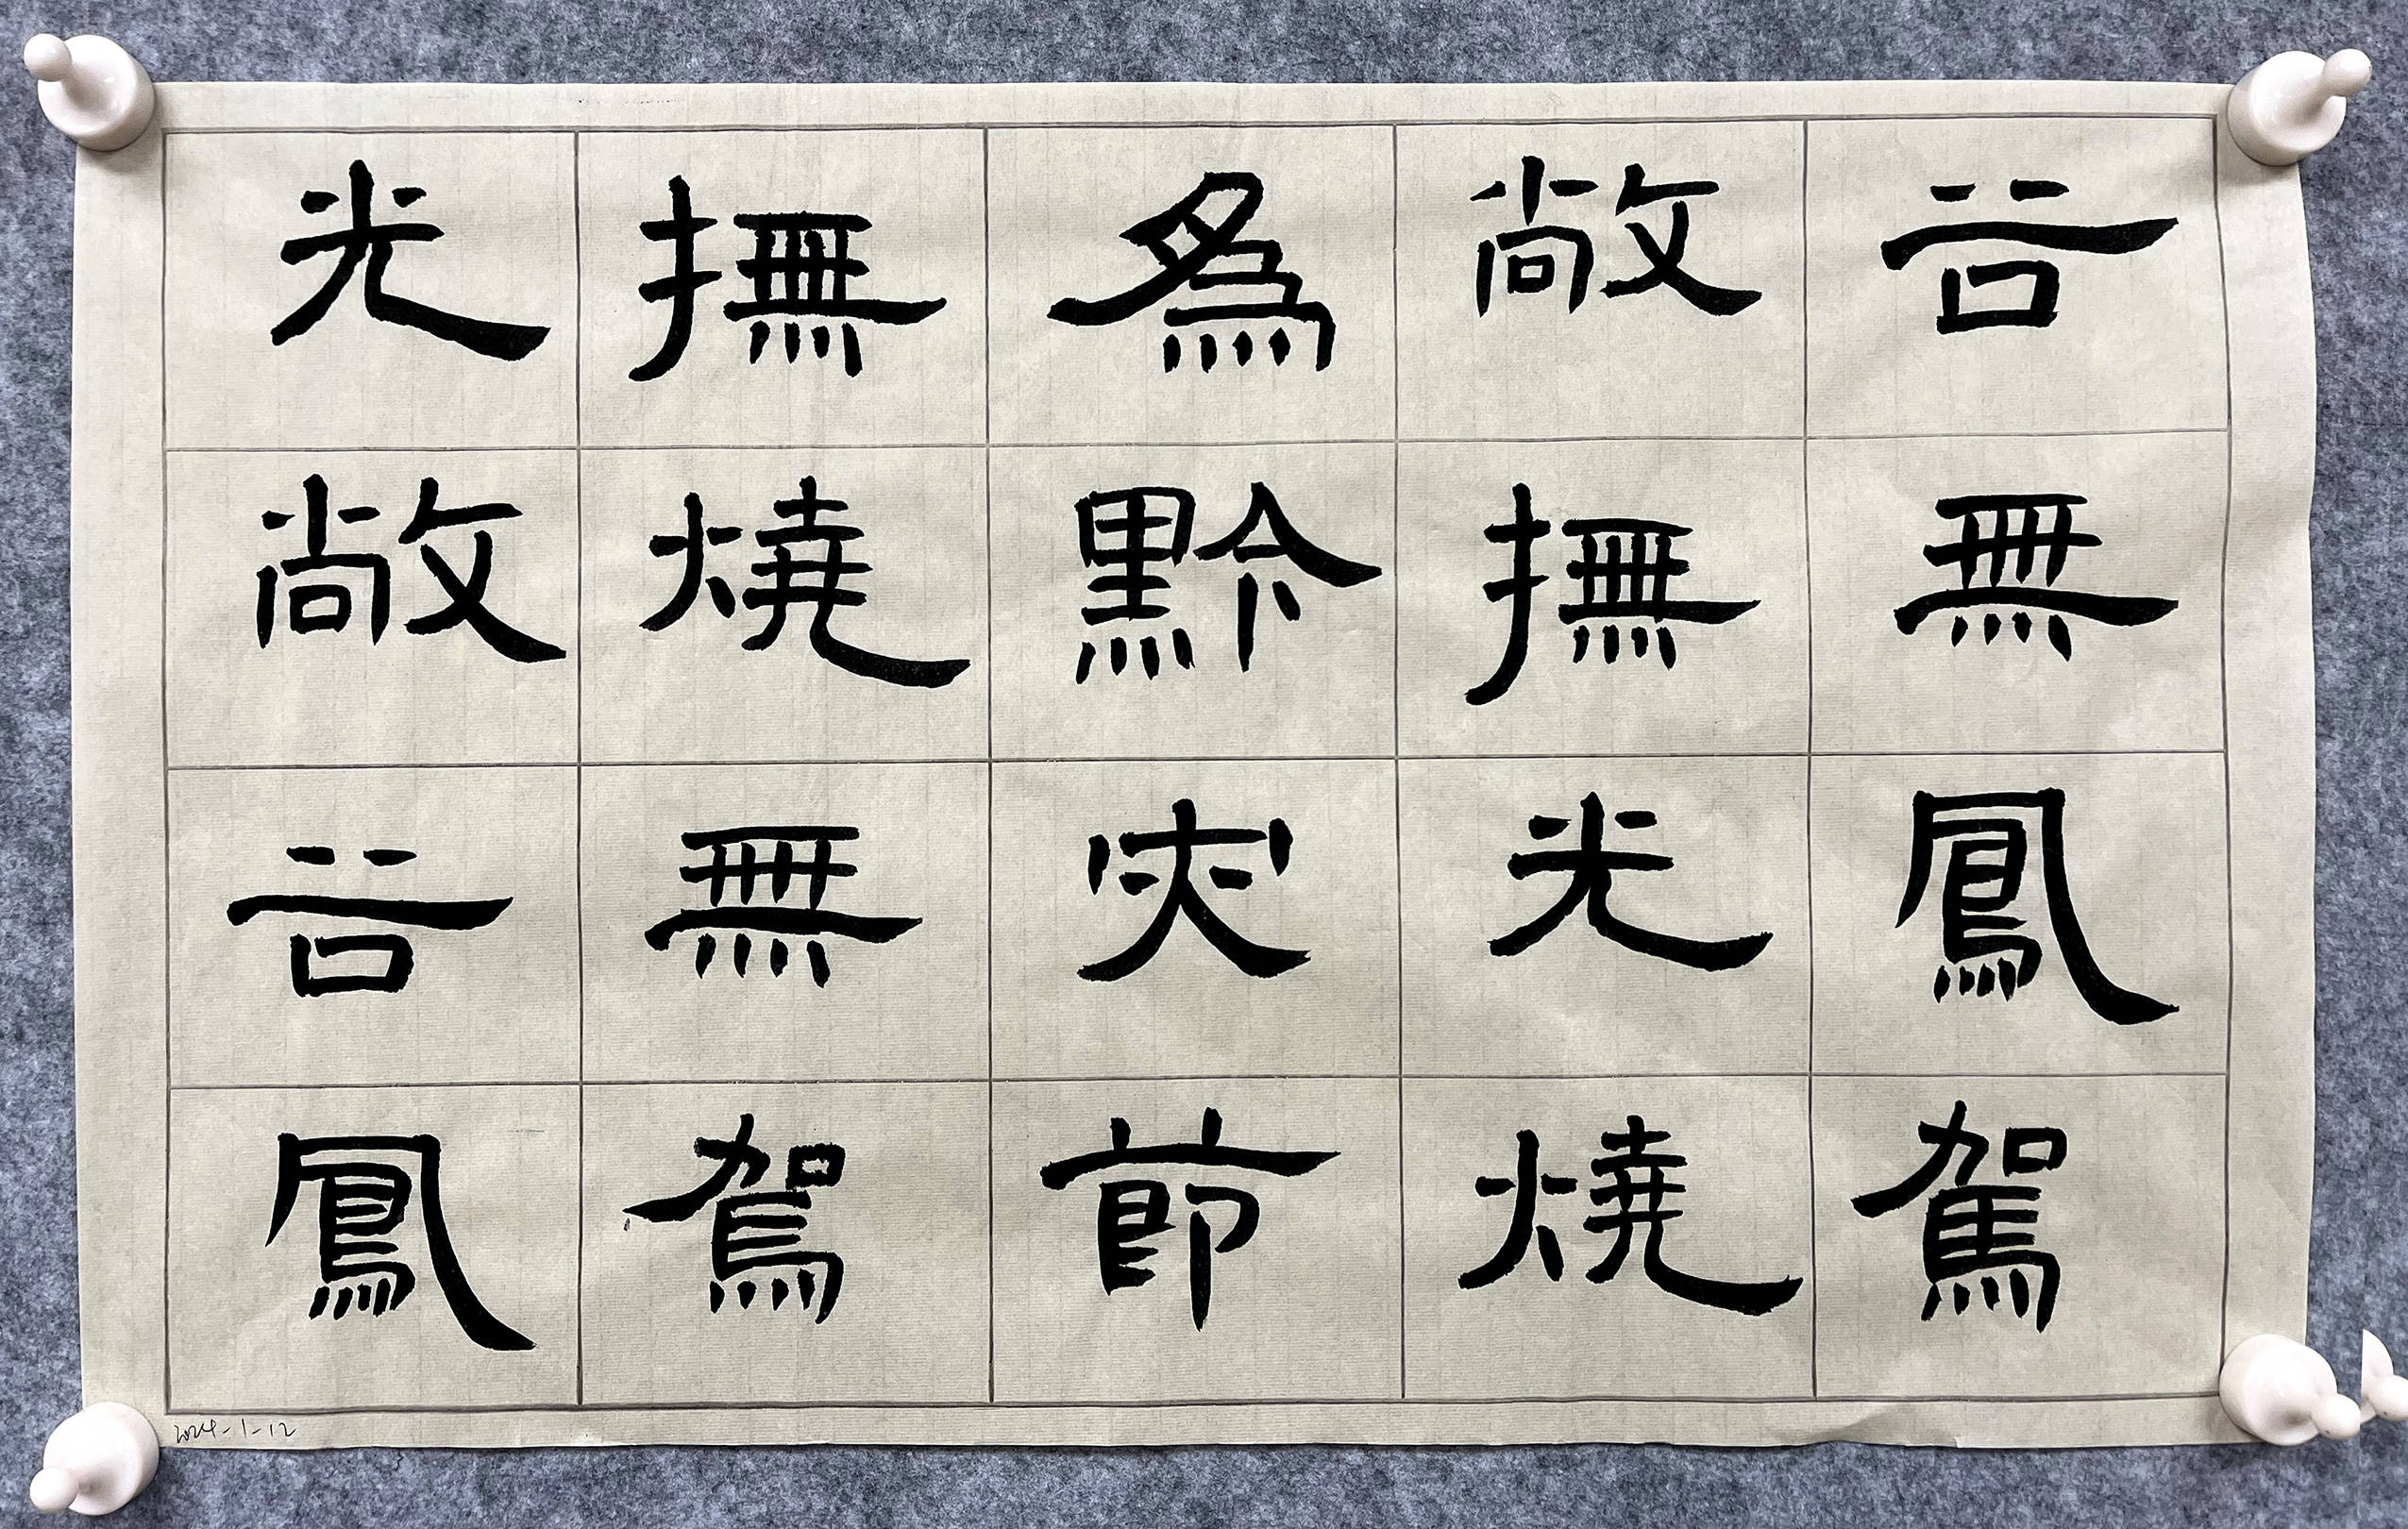 無鳳駕
敞撫光燒
為黔灾節
撫燒無駕
光敞鳳
2024-1-12